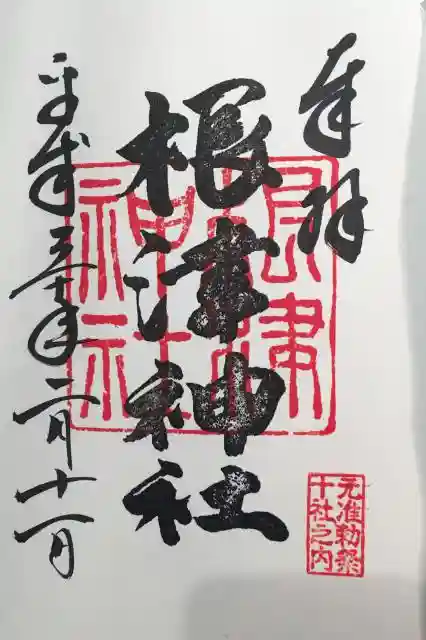 奉拝
根津神社
根津
神社
平成三十年二月十一日
元准勅祭
十社之内